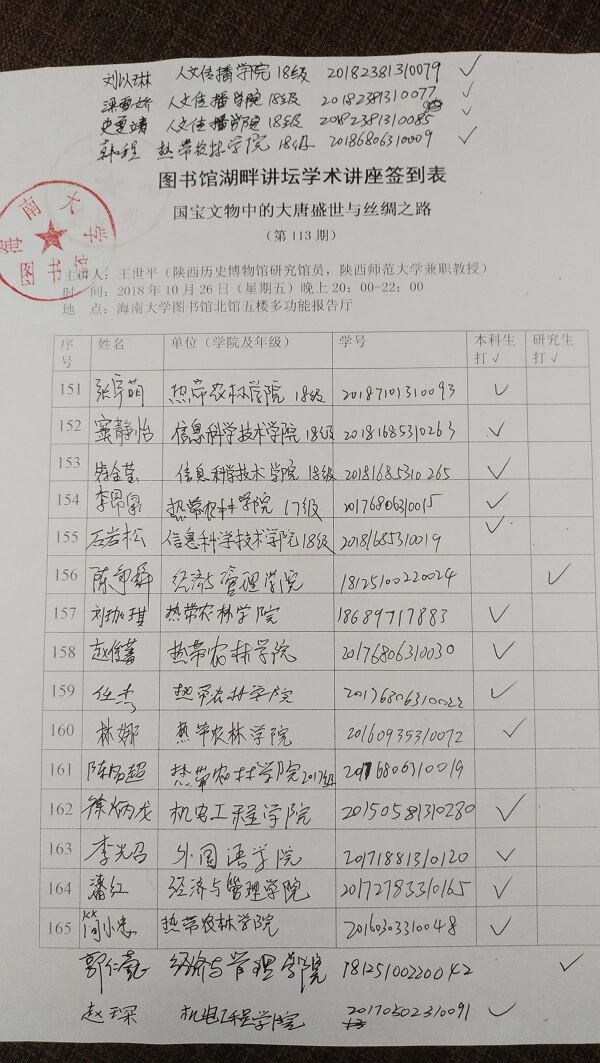 刘以琳 人文传播学院18级 20182381310079 ✓
人文传播学院18级 20182381310077 ✓
史更靖 人文传播学院18级 20182381310085 ✓
韩程 热带农林学院18级 20186806310009 ✓
图书馆湖畔讲坛学术讲座签到表
国宝文物中的大唐盛世与丝绸之路
（第113期）
海南大学图书馆
主讲人：王世平（陕西历史博物馆研究馆员，陕西师范大学兼职教授）
时 间：2018年10月26日（星期五）晚上20：00-22：00
地 点：海南大学图书馆北馆五楼多功能报告厅
序号 姓名 单位（学院及年级） 学号 本科生打√ 研究生打√
151 张宇萌 热带农林学院 18级 20187101310093 ✓
152 窦静怡 信息科学技术学院18级 20181685310263 ✓
153 信息科学技术学院 18级 20181685310265 ✓
154 李昂泉 热带农林学院 17级 20176806310015 ✓
155 石岩松 信息科学技术学院18级 20181685310019 ✓
156 经济与管理学院 18125100220024 ✓
157 刘珈琪 热带农林学院 18689717883 ✓
158 赵俊菁 热带农林学院 20176806310030 ✓
159 任杰 热带农林学院 20176806310022 ✓
160 林娜 热带农林学院 20160935310072 ✓
161 热带农林学院2017级 20176806310019
162 徐炳龙 机电工程学院 20150581310280 ✓
163 李光召 外国语学院 20171881310120 ✓
164 潘红 经济与管理学院 20172783310165 ✓
165 简小忠 热带农林学院 20160303310048 ✓
经济与管理学院 18125100220042 ✓
赵琛 机电工程学院 20170502310091 ✓